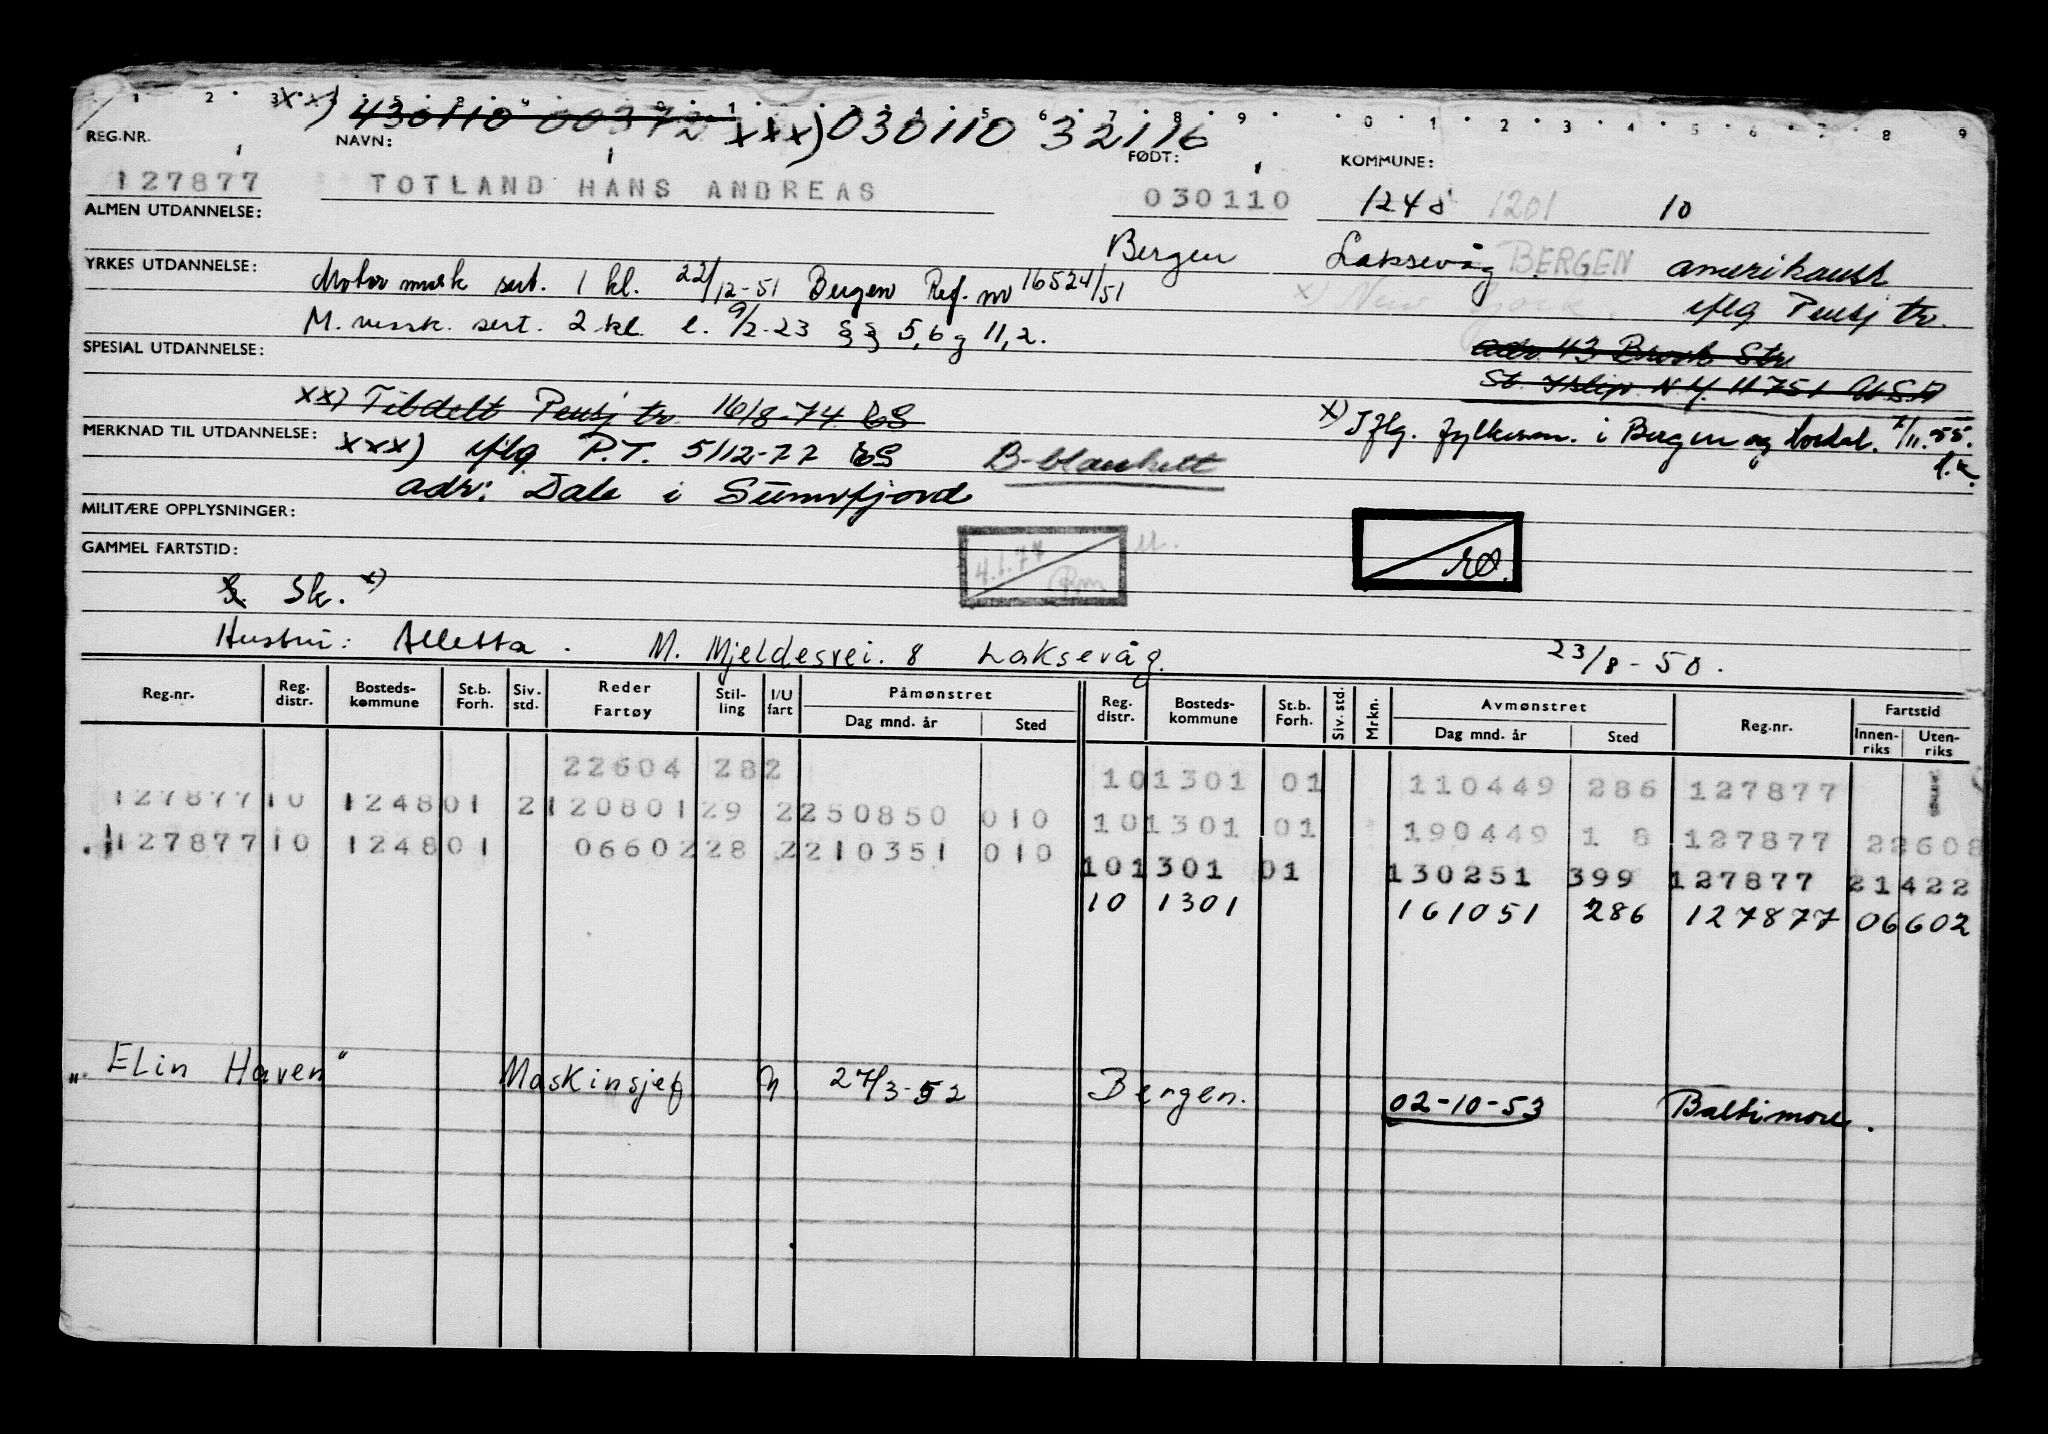 1 2 3 xx) 430110 00372 xxx) 030110 32116 9 0 1 2 3 4 5 6 7 8 9
REG.NR. NAVN: FØDT: KOMMUNE:
127877 TOTLAND HANS ANDREAS 030110 1248 1201 10
ALMEN UTDANNELSE:
Bergen Laksevåg BERGEN amerikansk
YRKES UTDANNELSE: Motor mask sert. 1 kl. 22/12-51 Bergen Ref. nr 16524/51 x) New York. iflg Pensj tr.
M. mask. sert. 2 kl. e. 9/2-23 §§ 5,6 g 11,2.
adr. 43 Brook Str
SPESIAL UTDANNELSE:
St. Islip N.Y. 11751 U.S.A
xx) Tildelt Pensj tr. 16/8-74 ES
x) Iflg. fylkesm. i Bergen og Hordal. 7/11.55.
MERKNAD TIL UTDANNELSE: xxx) iflg P.T. 5/12-77 ES B-blankett
adr: Dale i Sunnfjord
MILITÆRE OPPLYSNINGER:
4.1.77
GAMMEL FARTSTID:
Sk. x)
Hustru: Alletta. M. Mjeldesvei. 8 Laksevåg. 23/8-50.
Reg.nr. Reg. distr. Bosteds-kommune St.b. Forh. Siv. std. Reder Fartøy Stil-ling I/U fart Påmønstret Dag mnd. år Sted Reg. distr. Bosteds-kommune St.b. Forh. Siv. std. Mrkn. Avmønstret Dag mnd. år Sted Reg.nr. Fartstid Innen-riks Uten-riks
22604 282 10 1301 01 110449 286 127877
127877 10 1248 01 2 120801 29 2 250850 010 10 1301 01 190449 1 8 127877 22608
127877 10 1248 01 06602 28 2 210351 010 10 1301 01 130251 399 127877 21422
10 1301 161051 286 127877 06602
"Elin Haven" Maskinsjef 27/3-52 Bergen. 02-10-53 Baltimore.